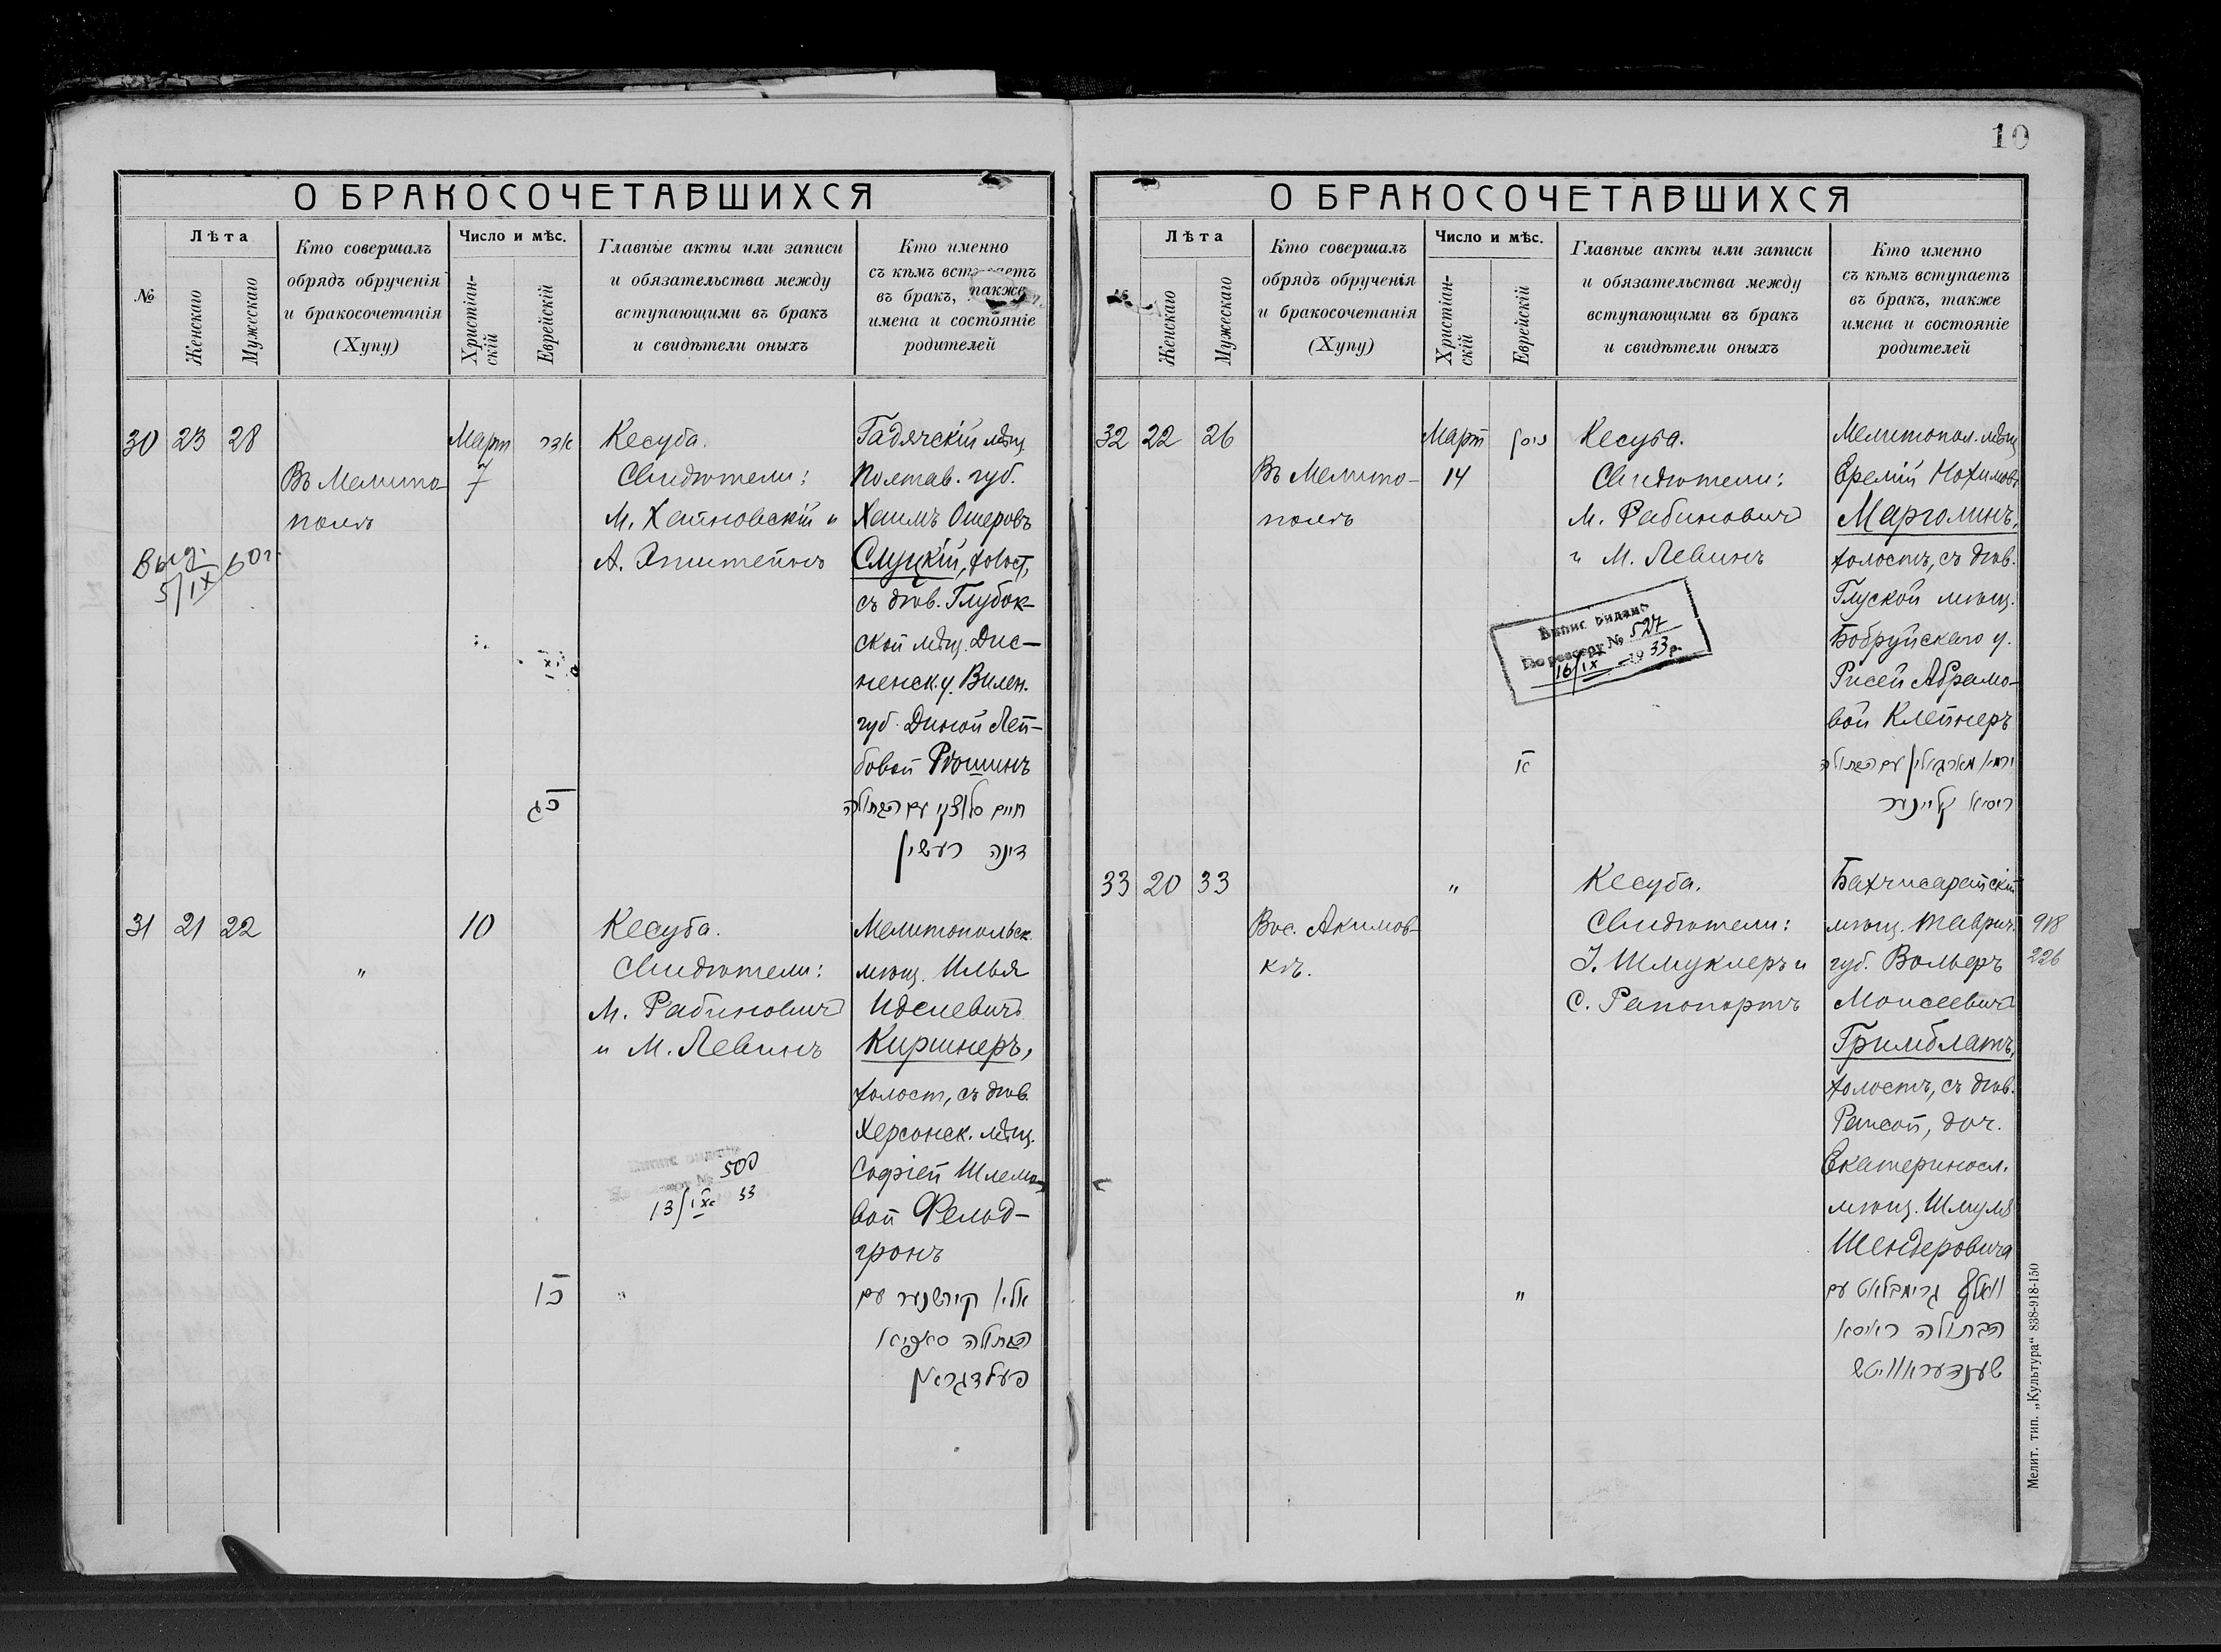 10
О БРАКОСОЧЕТАВШИХСЯ
№
Лѣта
Женскаго
Мужескаго
Кто совершалъ
обрядъ обрученія
и бракосочетанія
(Хупу)
Число и мѣс.
Христіан-
скій
Еврейскій
Главные акты или записи
и обязательства между
вступающими въ бракъ
и свидѣтели оныхъ
Кто именно
съ кѣмъ вступаетъ
въ бракъ, также
имена и состояніе
родителей
30 23 28
Въ Мелито-
полѣ
Март
7
אדר
כג
Выд.
5/IX 60г.
Кесуба.
Свидѣтели:
М. Хайновскій и
А. Эпштейнъ
Гадячскій мѣщ.
Полтав. губ.
Хаимъ Ошеровъ
Слуцкій, холост,
съ дѣв. Глубок-
ской мѣщ. Дис-
ненск. у. Вилен.
губ. Диной Лей-
бовой Рѣшинъ
חיים סלוצקי עם הבתולה
דינה רעשין
31 21 22
"
10
כו
Кесуба.
Свидѣтели:
М. Рабиновичъ
и М. Левинъ
500
13/IX 33
Мелитопольск.
мѣщ. Илья
Иделевичъ
Киршнеръ,
холост, съ дѣв.
Херсонск. мѣщ.
Софіей Шлемо-
вой Фельд-
гронъ
אלי' קירשנער עם
הבתולה סאפיא
פעלדגראן
О БРАКОСОЧЕТАВШИХСЯ
Лѣта
Женскаго
Мужескаго
Кто совершалъ
обрядъ обрученія
и бракосочетанія
(Хупу)
Число и мѣс.
Христіан-
скій
Еврейскій
Главные акты или записи
и обязательства между
вступающими въ бракъ
и свидѣтели оныхъ
Кто именно
съ кѣмъ вступаетъ
въ бракъ, также
имена и состояніе
родителей
32 22 26
Въ Мелито-
полѣ
Март
14
ניסן
א
Кесуба.
Свидѣтели:
М. Рабиновичъ
и М. Левинъ
Випис видано
По реєстру № 527
16/IX 1933 р.
Мелитопол. мѣщ.
Еремій Нохимовъ
Марголинъ,
холостъ, съ дѣв.
Глуской мѣщ.
Бобруйскаго у.
Рисей Абрамо-
вой Клейнеръ
ירמי' מארגאלין עם הבתולה
ריסא קליינער
33 20 33
Въ с. Акимов-
кѣ.
"
"
Кесуба.
Свидѣтели:
І. Шмуклеръ и
С. Рапопортъ
Бахчисарайскій
мѣщ. Таврич.
губ. Вольфъ
Моисеевичъ
Гримблатъ,
холостъ, съ дѣв.
Раисой, доч.
Екатеринosл.
мѣщ. Шмуля
Шендеровича
וואלף גרימבלאט עם
הבתולה ראיסא
שענדעראוויטש
918
226
Мелит. тип. „Культура“ 838-918-150